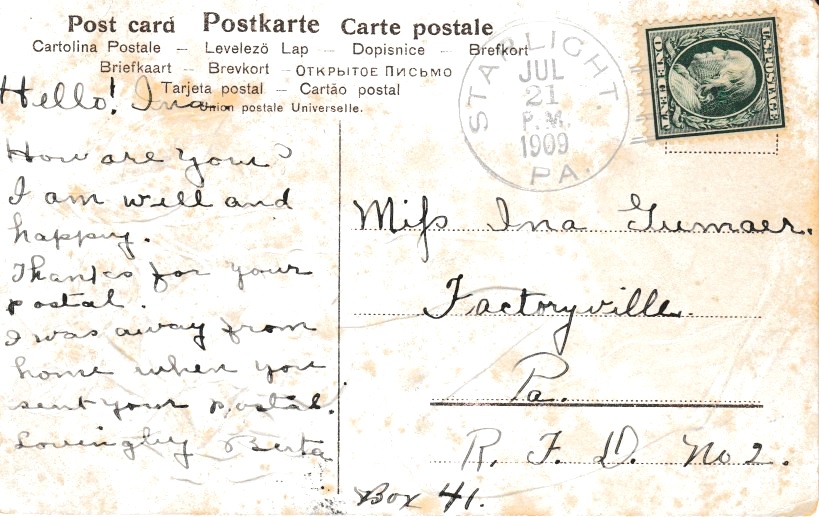 Post card Postkarte Carte postale
Cartolina Postale – Levelező Lap – Dopisnice – Brefkort
Briefkaart – Brevkort – ОТКРЫТОЕ ПИСЬМО
Tarjeta postal – Cartão postal
Union postale Universelle.
STARLIGHT.
JUL
21
P.M.
1909
PA.
U.S. POSTAGE
ONE CENT
Hello! Ina.
How are you?
I am well and
happy.
Thanks for your
postal.
I was away from
home when you
sent your postal.
Lovingly Berta
Miss Ina Gumaer.
Factoryville.
Pa.
R. F. D. No 2.
Box 41.